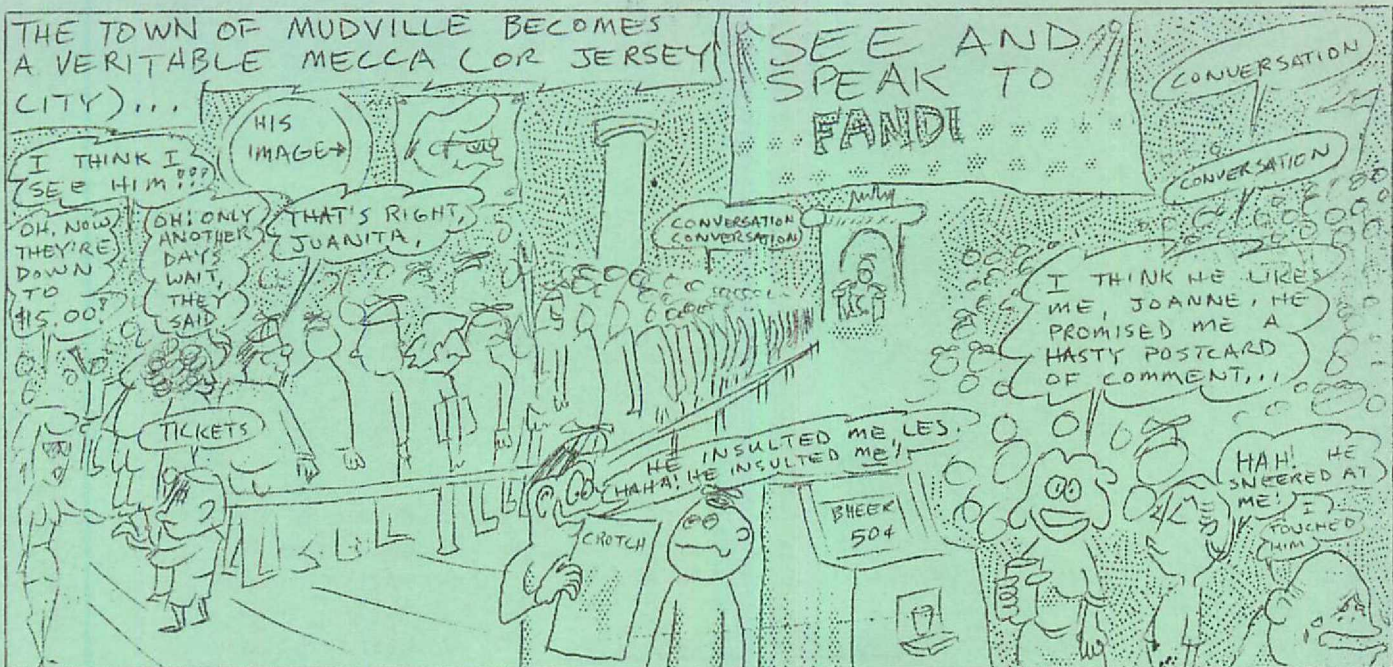 THE TOWN OF MUDVILLE BECOMES
A VERITABLE MECCA (OR JERSEY
CITY)...
HIS
IMAGE→
I THINK I
SEE HIM!!!
OH, NOW
THEY'RE
DOWN
TO
$15.00!
OH! ONLY
ANOTHER
DAYS
WAIT,
THEY
SAID
THAT'S RIGHT,
JUANITA,
TICKETS
CONVERSATION
CONVERSATION
SEE AND
SPEAK TO
FANDI
CONVERSATION
CONVERSATION
I THINK HE LIKES
ME, JOANNE, HE
PROMISED ME A
HASTY POSTCARD
OF COMMENT...
HE INSULTED ME, LES.
HAHA! HE INSULTED ME!
CROTCH
BHEER
50¢
HAH! HE
SNEERED AT
ME!
I
TOUCHED
HIM